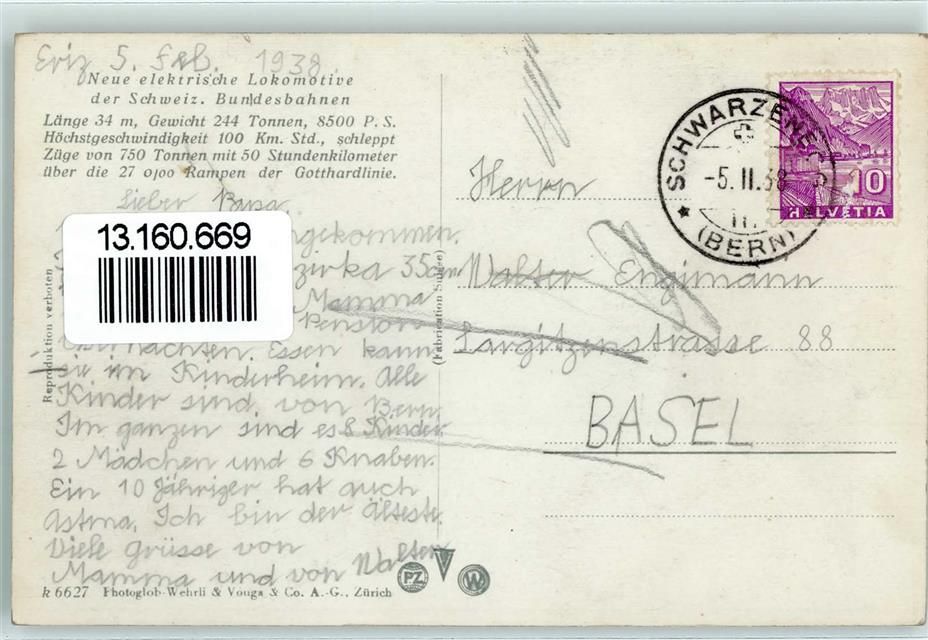 Eriz 5. Feb. 1938.
Neue elektrische Lokomotive
der Schweiz. Bundesbahnen
Länge 34 m, Gewicht 244 Tonnen, 8500 P. S.
Höchstgeschwindigkeit 100 Km. Std., schleppt
Züge von 750 Tonnen mit 50 Stundenkilometer
über die 27 0/00 Rampen der Gotthardlinie.
Lieber Papa
angekommen.
13.160.669
zirka 35cm
Mamma
Pension
Essen kann
sie im Kinderheim. Alle
Kinder sind von Bern.
Im ganzen sind es 8 Kinder
2 Mädchen und 6 Knaben.
Ein 10 Jähriger hat auch
Astma. Ich bin der Älteste.
Viele Grüsse von
Mamma und von Walter
k 6627 Photoglob-Wehrli & Vouga & Co. A.-G., Zürich
PZ
V
W
Reproduktion verboten
(Fabrication Suisse)
SCHWARZENEGG
-5.II.38
(BERN)
10
HELVETIA
Herrn
Walter Engimann
Largitzenstrasse 88
BASEL